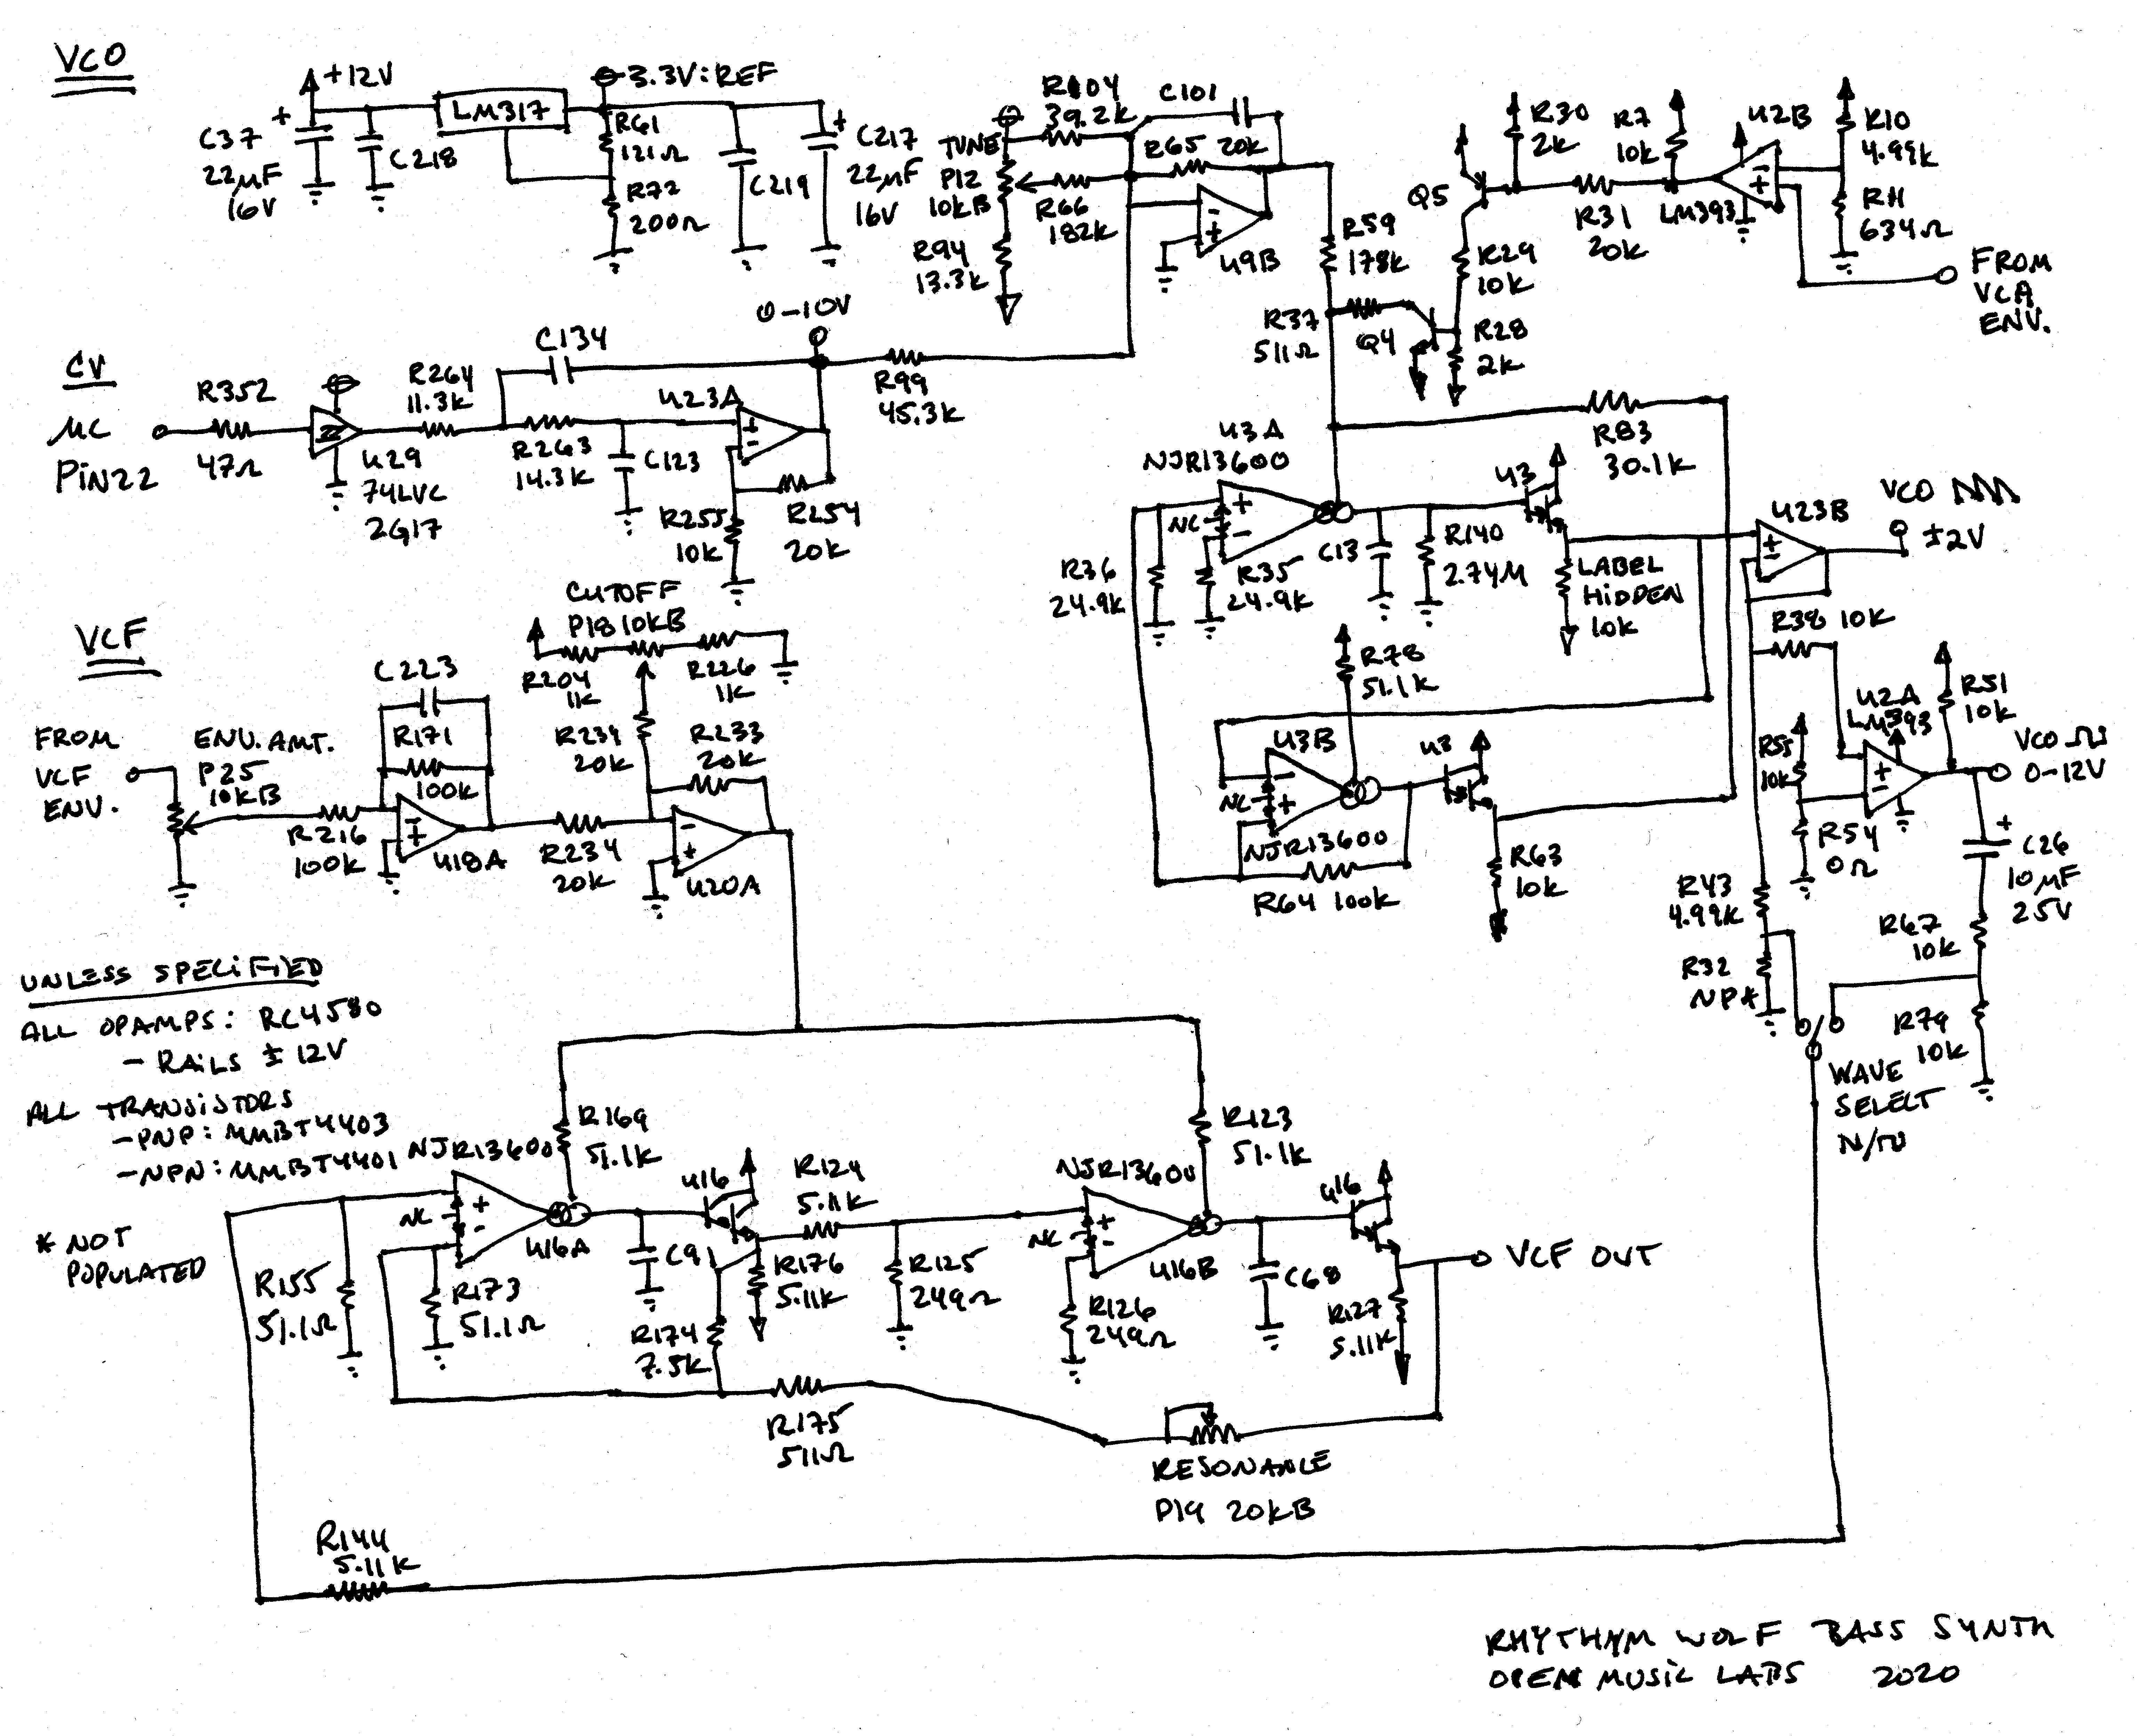 VCO
+12V
LM317
3.3V:REF
C37
22µF
16V
C218
R61
121Ω
R72
200Ω
C219
C217
22µF
16V
TUNE
P12
10kB
R94
13.3k
R104
39.2k
R66
182k
C101
R65 20k
U9B
R59
178k
R37
511Ω
Q4
Q5
R29
10k
R28
2k
R30
2k
R31
20k
R7
10k
LM393
U2B
R10
4.99k
R11
634Ω
FROM
VCA
ENV.
CV
µC
PIN22
R352
47Ω
U29
74LVC
2G17
R264
11.3k
C134
R263
14.3k
C123
U23A
0-10V
R99
45.3k
R255
10k
R254
20k
U3A
NJR13600
NC
R36
24.9k
R35
24.9k
C13
R140
2.74M
U3
LABEL
HIDDEN
10k
R83
30.1k
U23B
VCO
±2V
R78
51.1k
U3B
NC
NJR13600
R64 100k
U3
R63
10k
R38 10k
U2A
LM393
R51
10k
R55
10k
R54
0Ω
VCO
0-12V
C26
10µF
25V
R43
4.99k
R32
NP*
R67
10k
R79
10k
WAVE
SELECT
VCF
FROM
VCF
ENV.
ENV. AMT.
P25
10kB
R216
100k
C223
R171
100k
U18A
CUTOFF
P18 10kB
R204
1k
R226
1k
20k
R233
20k
R234
20k
U20A
UNLESS SPECIFIED
ALL OPAMPS: RC4580
- RAILS ± 12V
ALL TRANSISTORS
-PNP: MMBT4403
-NPN: MMBT4401
* NOT
POPULATED
NJR13600
NC
U16A
R169
51.1k
R155
51.1Ω
R173
51.1Ω
C91
U16
R124
5.11k
R176
5.11k
R174
7.5k
R125
249Ω
R175
511Ω
NJR13600
NC
U16B
R123
51.1k
R126
249Ω
C68
U16
R127
5.11k
VCF OUT
RESONANCE
P19 20kB
R144
5.11k
RHYTHYM WOLF BASS SYNTH
OPEN MUSIC LABS 2020